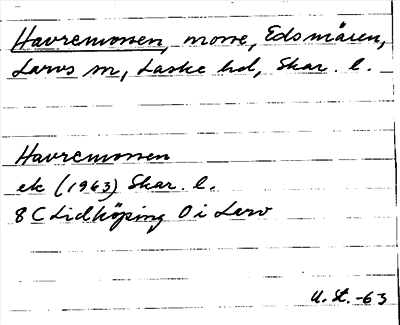 Havremossen, mosse, Edsmären,
Larvs sn, Laske hd, Skar. l.
Havremossen
ek (1963) Skar. l.
8 C Lidköping 0 i Larv
U. St. -63